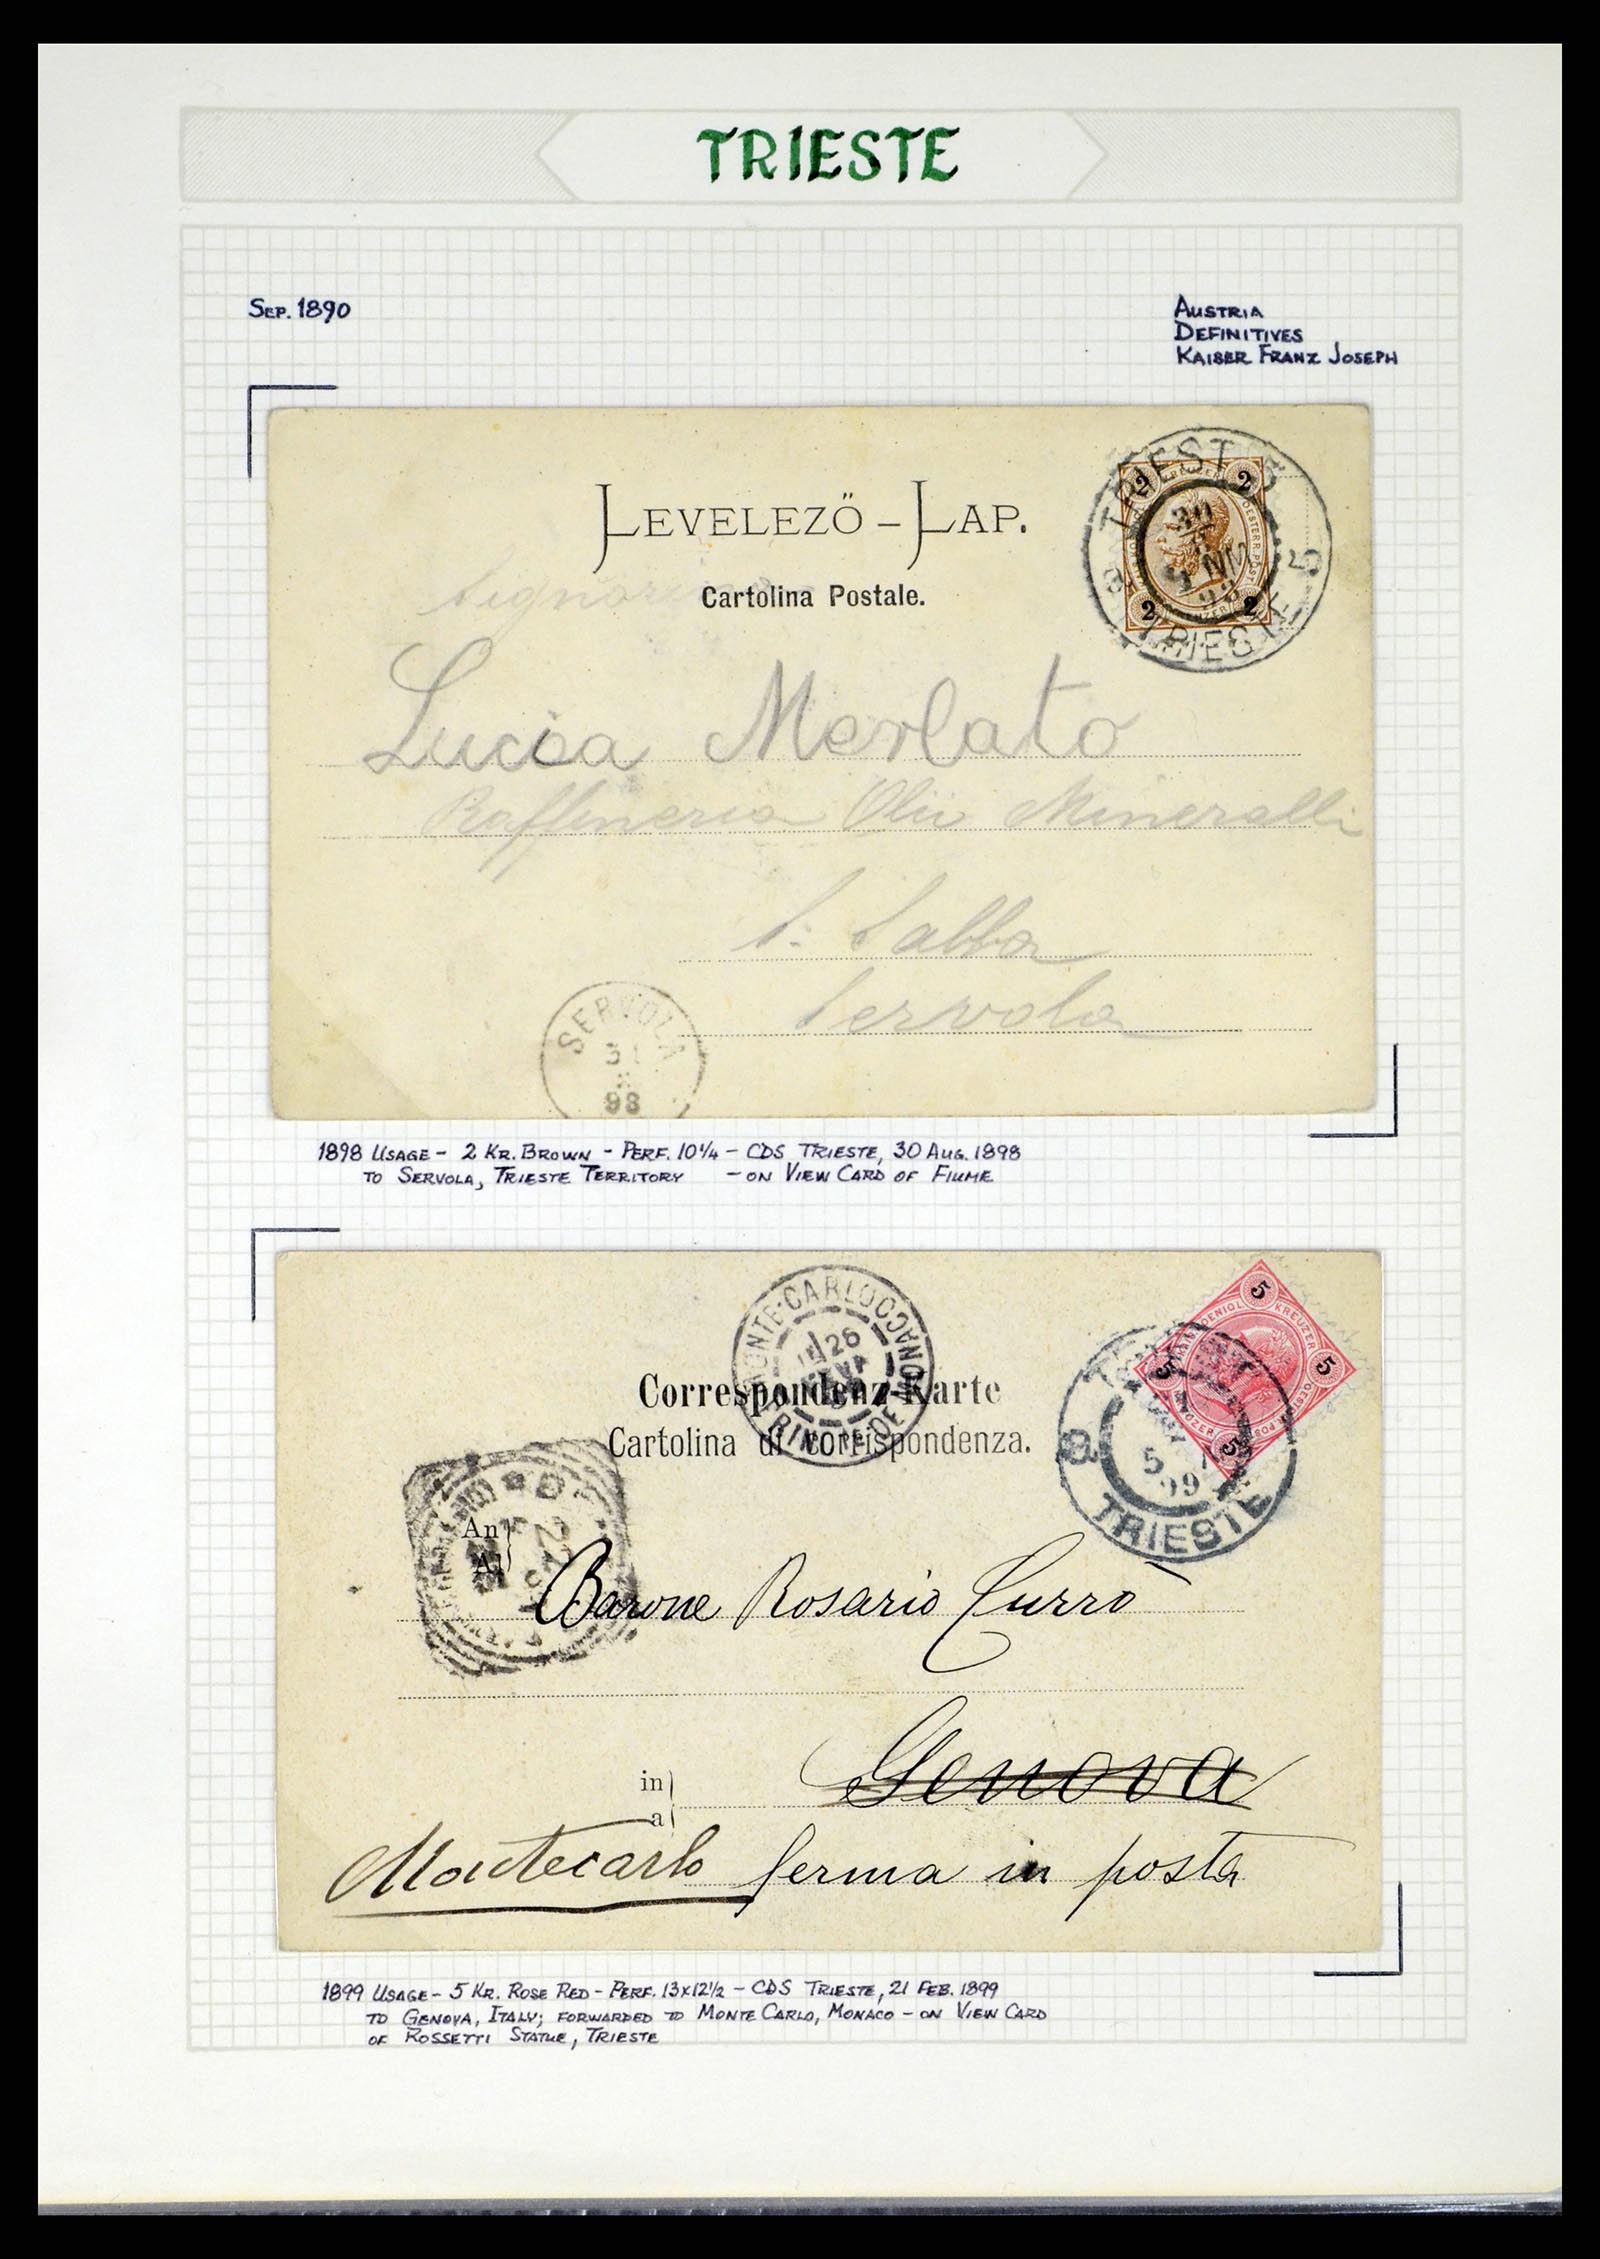 TRIESTE
SEP. 1890
AUSTRIA
DEFINITIVES
KAISER FRANZ JOSEPH
LEVELEZŐ – LAP.
Cartolina Postale.
Signorina
Lucia Merlato
Raffineria Olii Mineralli
S. Sabba
Servola
TRIEST 5
30
98
TRIESTE 5
2
2
2
2
SERVOLA
31
8
98
1898 USAGE – 2 KR. BROWN – PERF. 10¼ – CDS TRIESTE, 30 AUG. 1898
TO SERVOLA, TRIESTE TERRITORY – ON VIEW CARD OF FIUME
MONTE-CARLO
26
PRINCIPAUTÉ DE MONACO
5
5
5
5
KREUZER
TRIESTE
99
Correspondenz-Karte
Cartolina di corrispondenza.
An
Al
Barone Rosario Currò
Genova
in
a
Montecarlo ferma in posta
1899 USAGE – 5 KR. ROSE RED – PERF. 13x12½ – CDS TRIESTE, 21 FEB. 1899
TO GENOVA, ITALY; FORWARDED TO MONTE CARLO, MONACO – ON VIEW CARD
OF ROSSETTI STATUE, TRIESTE